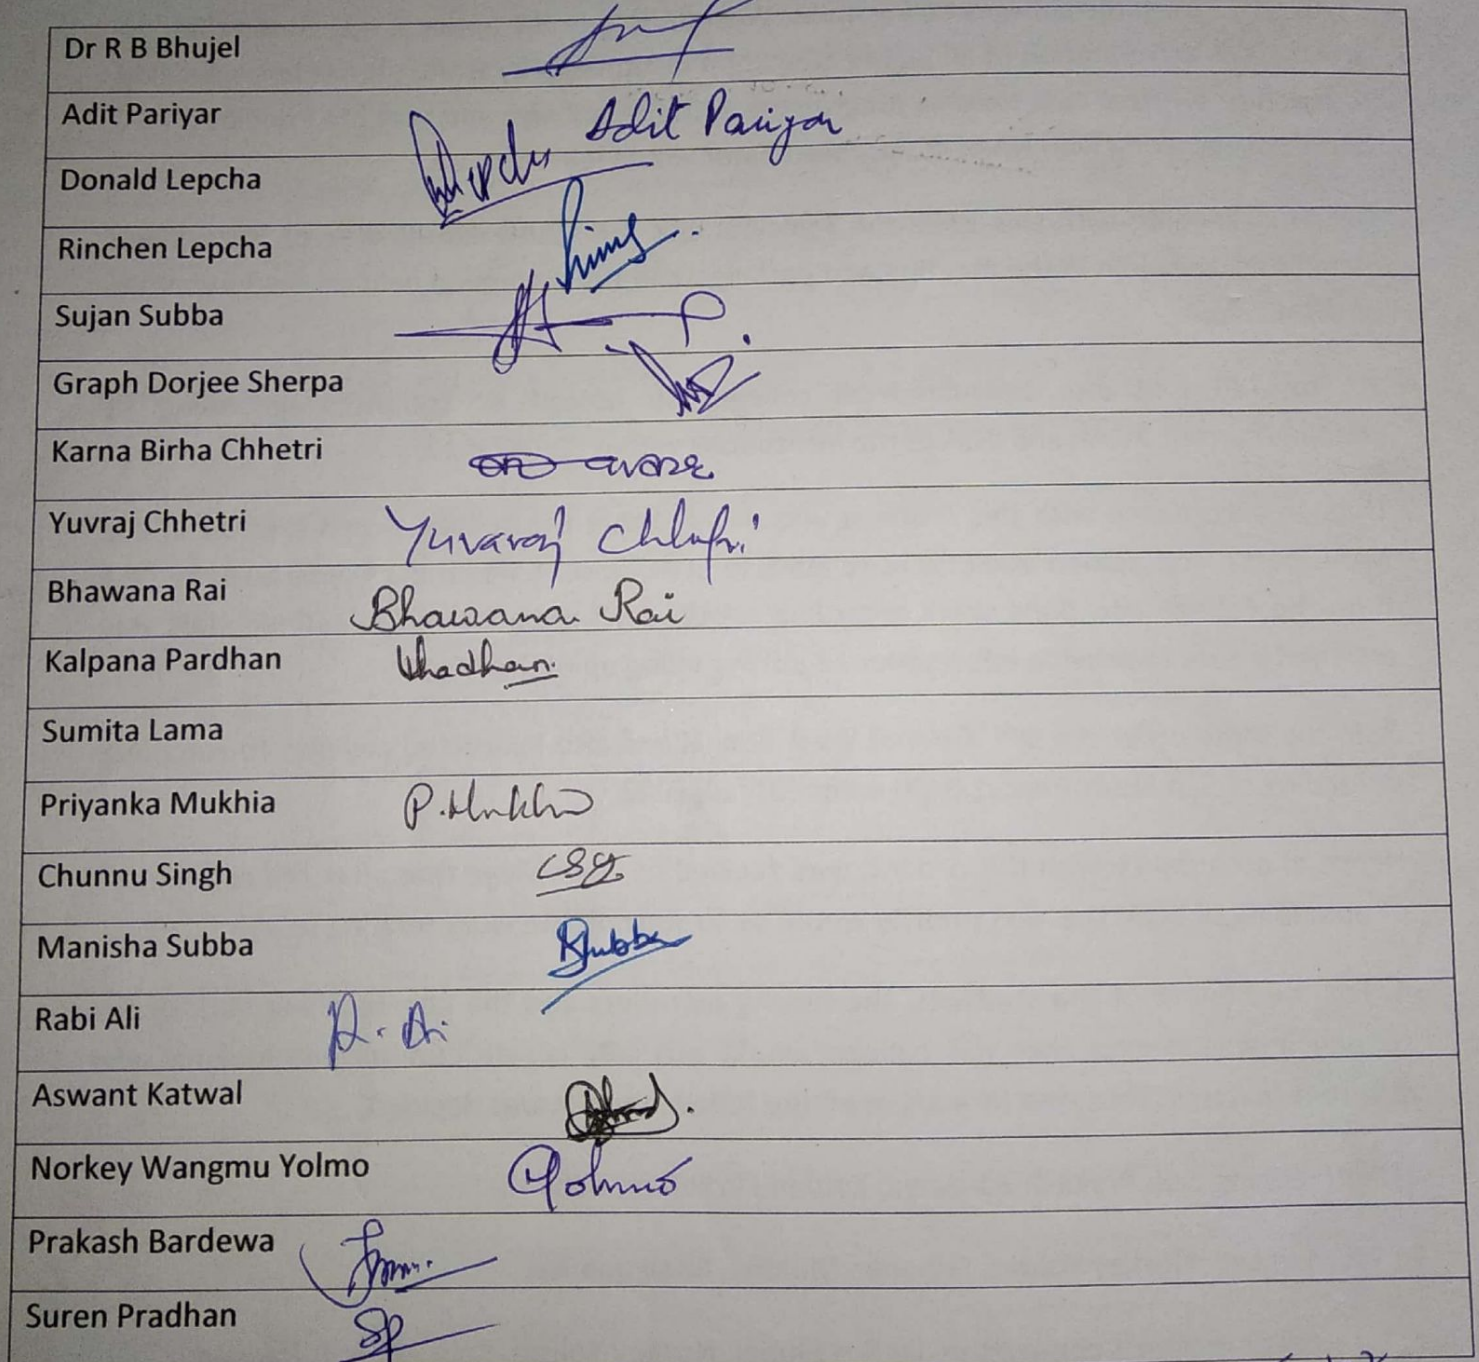 Dr R B Bhujel
Adit Pariyar Adit Pariyar
Donald Lepcha
Rinchen Lepcha
Sujan Subba
Graph Dorjee Sherpa
Karna Birha Chhetri
Yuvraj Chhetri Yuvaraj Chhetri
Bhawana Rai Bhawana Rai
Kalpana Pardhan
Sumita Lama
Priyanka Mukhia P. Mukhia
Chunnu Singh
Manisha Subba Subba
Rabi Ali R. Ali
Aswant Katwal
Norkey Wangmu Yolmo Yolmo
Prakash Bardewa
Suren Pradhan SP